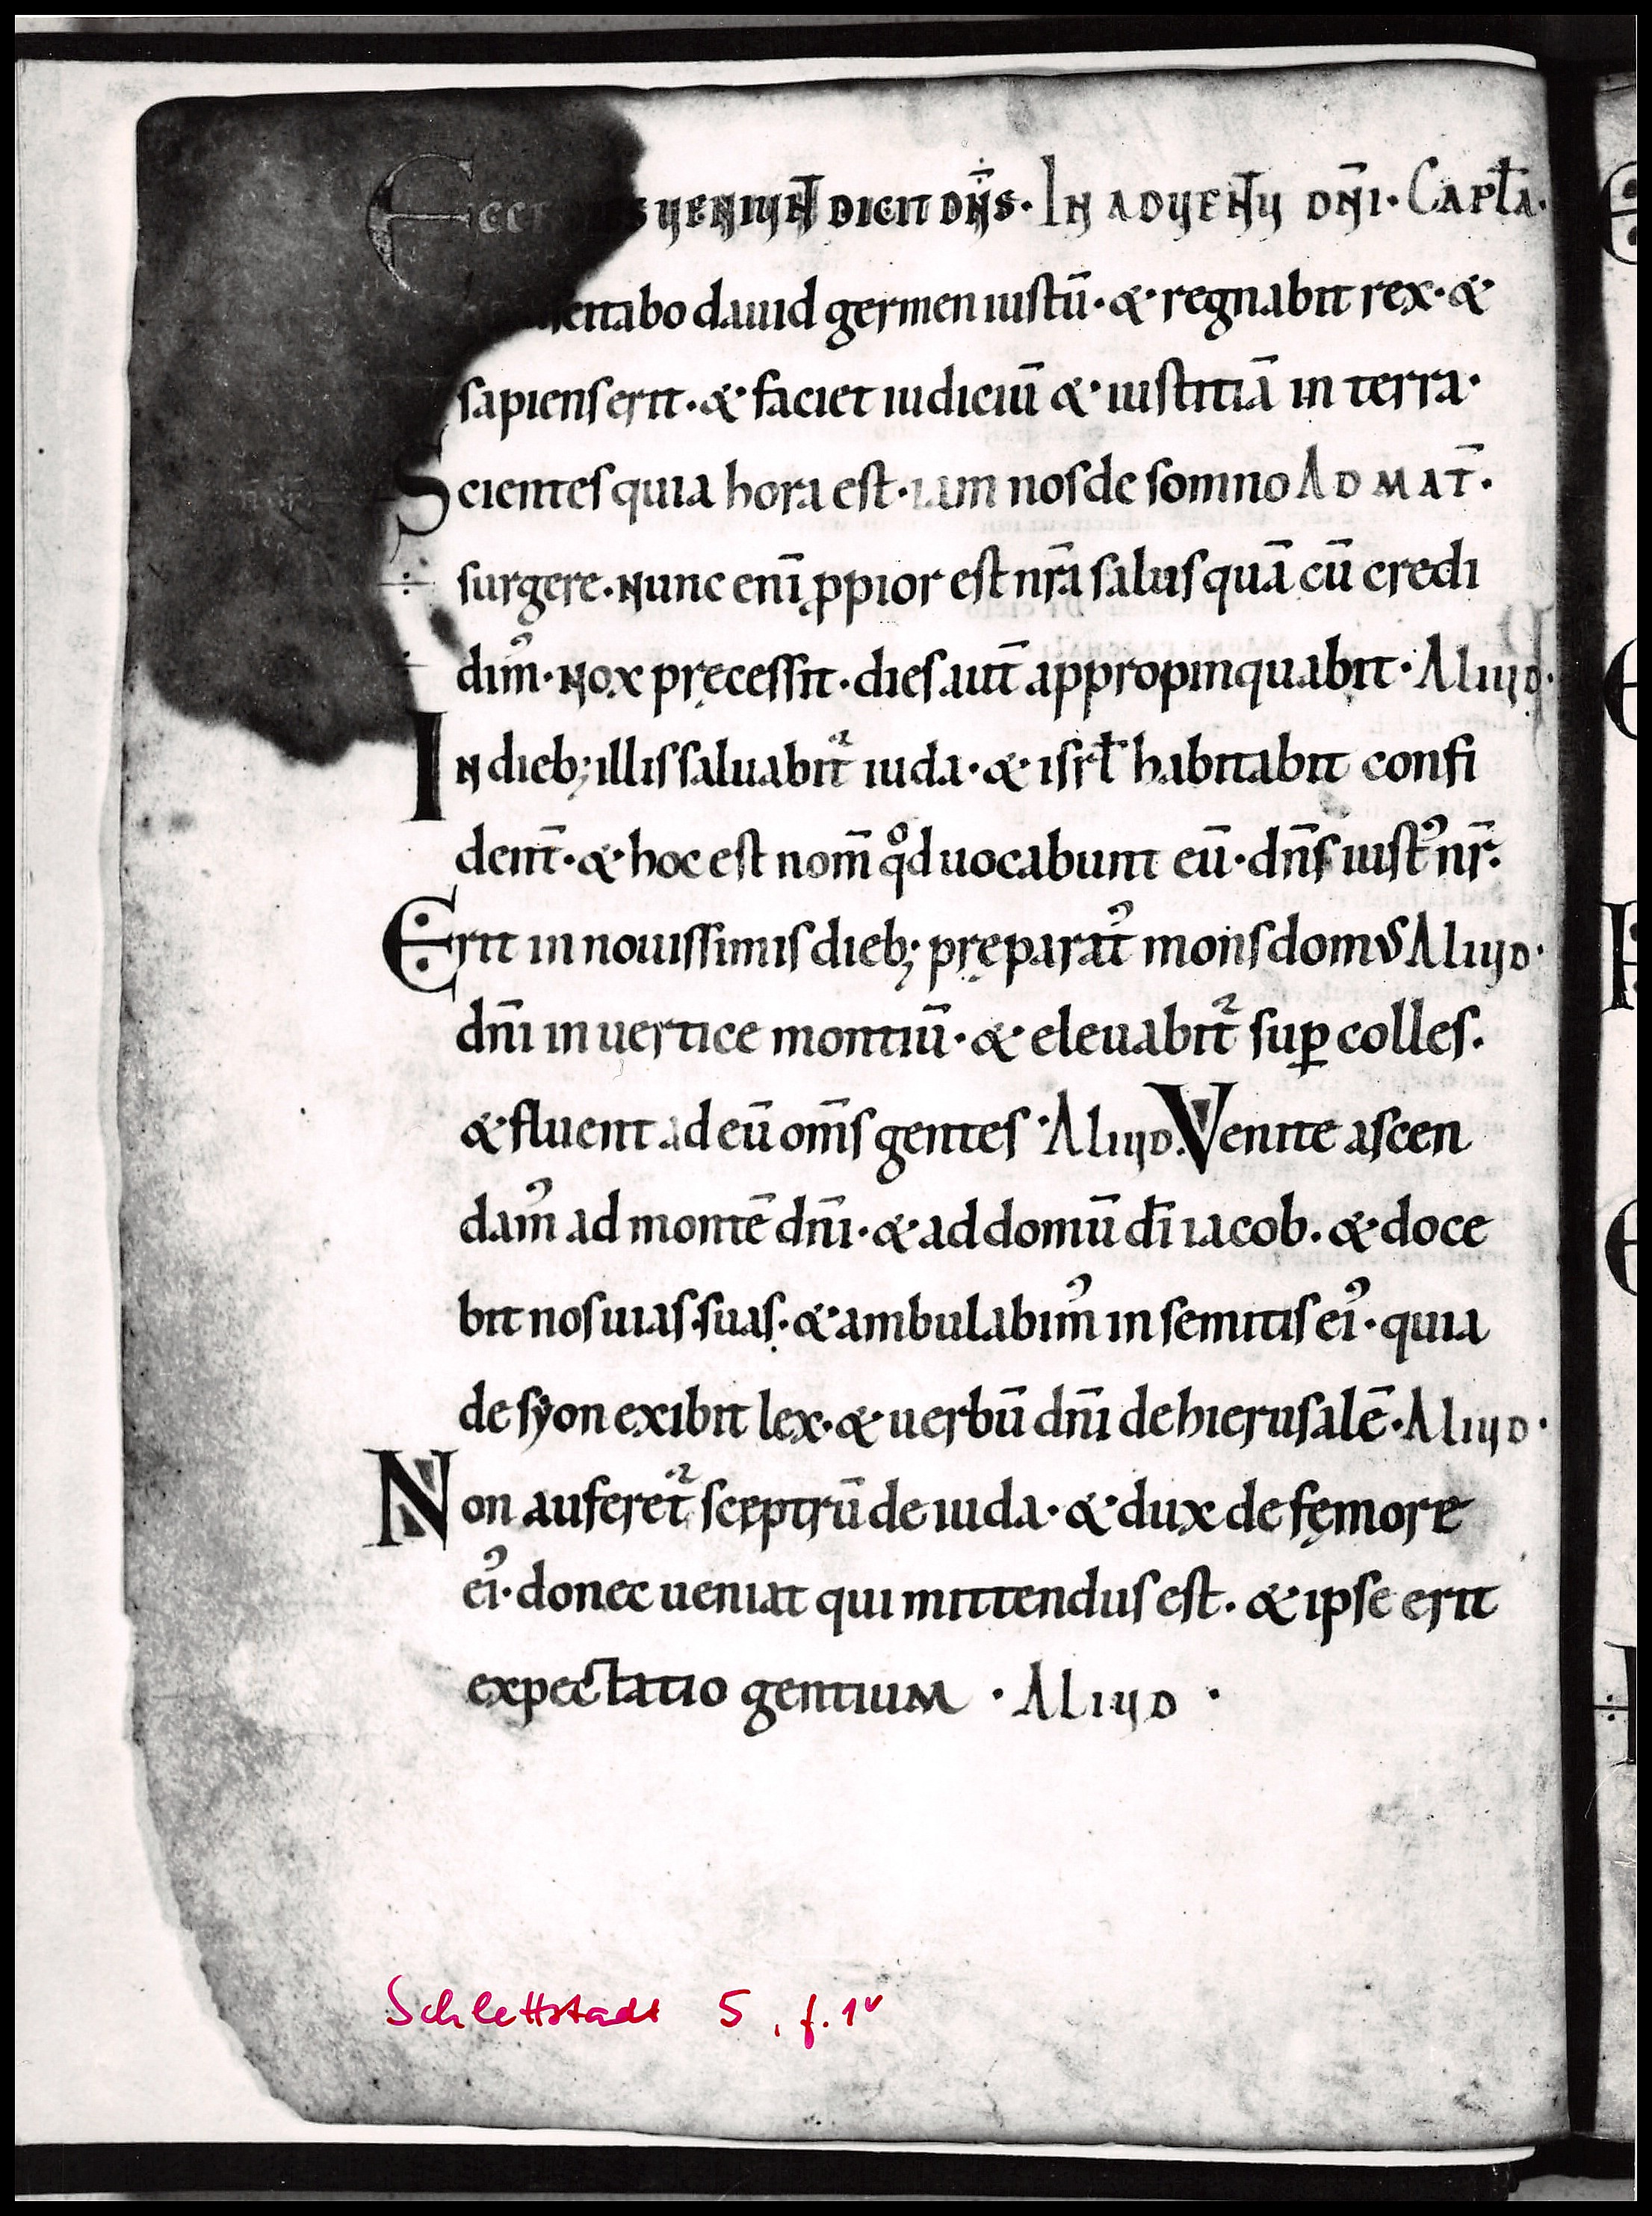 Ecce ueniunt dicit dn̄s· In aduentu dn̄i· Capl̄a·
dauid germen iustū· &· regnabit rex· &·
sapiens erit· &· faciet iudiciū &· iustitiā in terra·
Scientes quia hora est· iam nos de somno Ad mat̄·
surgere· Nunc eni̅ ꝓpior est nr̄a salus quā cū credi
dim᷒· Nox pręcessit· dies aut̄ appropinquabit· Aliud·
In dieb; illis saluabit᷑ iuda· &· isrl̄ habitabit confi
dent̄· &· hoc est nom̄ qͦd uocabunt eū· dn̄s iust᷒ nr̄·
Erit in nouissimis dieb; pręparat᷒ mons domus Aliud·
dn̄i in uertice montiū· &· eleuabit᷑ suꝑ colles·
&· fluent ad eū om̄s gentes· Aliud· Venite ascen
dam᷒ ad montē dn̄i· &· ad domū dī iacob· &· doce
bit nos uias suas· &· ambulabim᷒ in semitis ei᷒· quia
de syon exibit lex· &· uerbū dn̄i de hierusalē· Aliud·
Non auferet᷑ sceptrū de iuda· &· dux de fęmore
ei᷒· donec ueniat qui mittendus est· &· ipse erit
expectatio gentium · Aliud ·
Schlettstadt 5, f. 1ᵛ